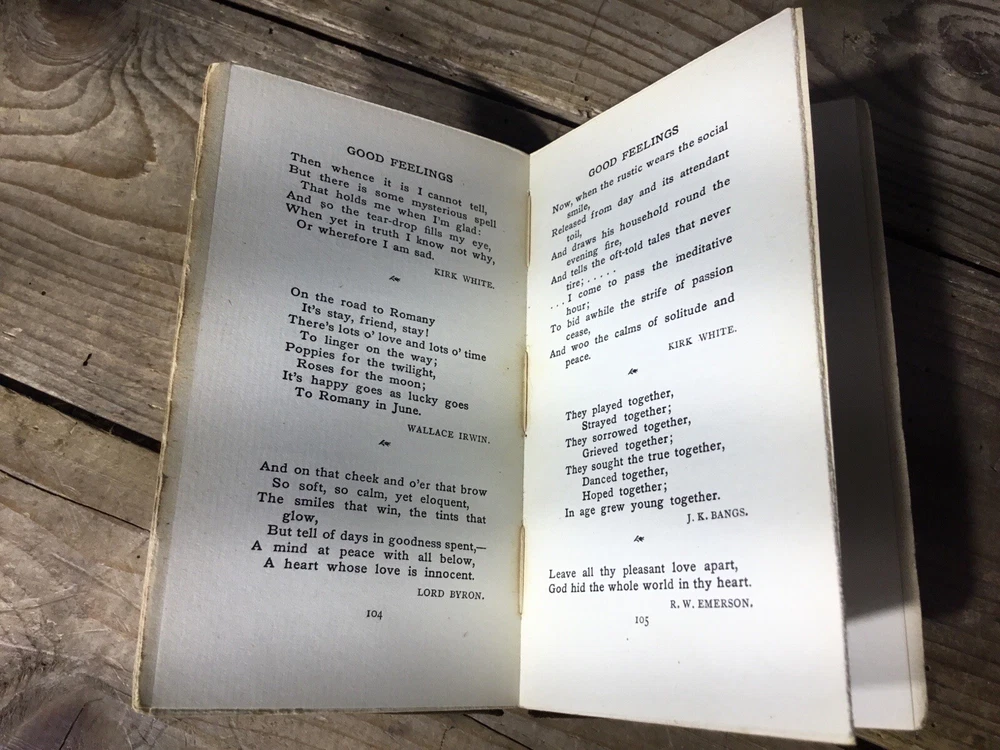 GOOD FEELINGS
Then whence it is I cannot tell,
But there is some mysterious spell
That holds me when I'm glad:
And so the tear-drop fills my eye,
When yet in truth I know not why,
Or wherefore I am sad.
KIRK WHITE.
On the road to Romany
It's stay, friend, stay!
There's lots o' love and lots o' time
To linger on the way;
Poppies for the twilight,
Roses for the moon;
It's happy goes as lucky goes
To Romany in June.
WALLACE IRWIN.
And on that cheek and o'er that brow
So soft, so calm, yet eloquent,
The smiles that win, the tints that
glow,
But tell of days in goodness spent,—
A mind at peace with all below,
A heart whose love is innocent.
LORD BYRON.
104
GOOD FEELINGS
Now, when the rustic wears the social
smile,
Released from day and its attendant
toil,
And draws his household round the
evening fire,
And tells the oft-told tales that never
tire; . . . . .
. . . I come to pass the meditative
hour;
To bid awhile the strife of passion
cease,
And woo the calms of solitude and
peace.
KIRK WHITE.
They played together,
Strayed together;
They sorrowed together,
Grieved together;
They sought the true together,
Danced together,
Hoped together;
In age grew young together.
J. K. BANGS.
Leave all thy pleasant love apart,
God hid the whole world in thy heart.
R. W. EMERSON.
105